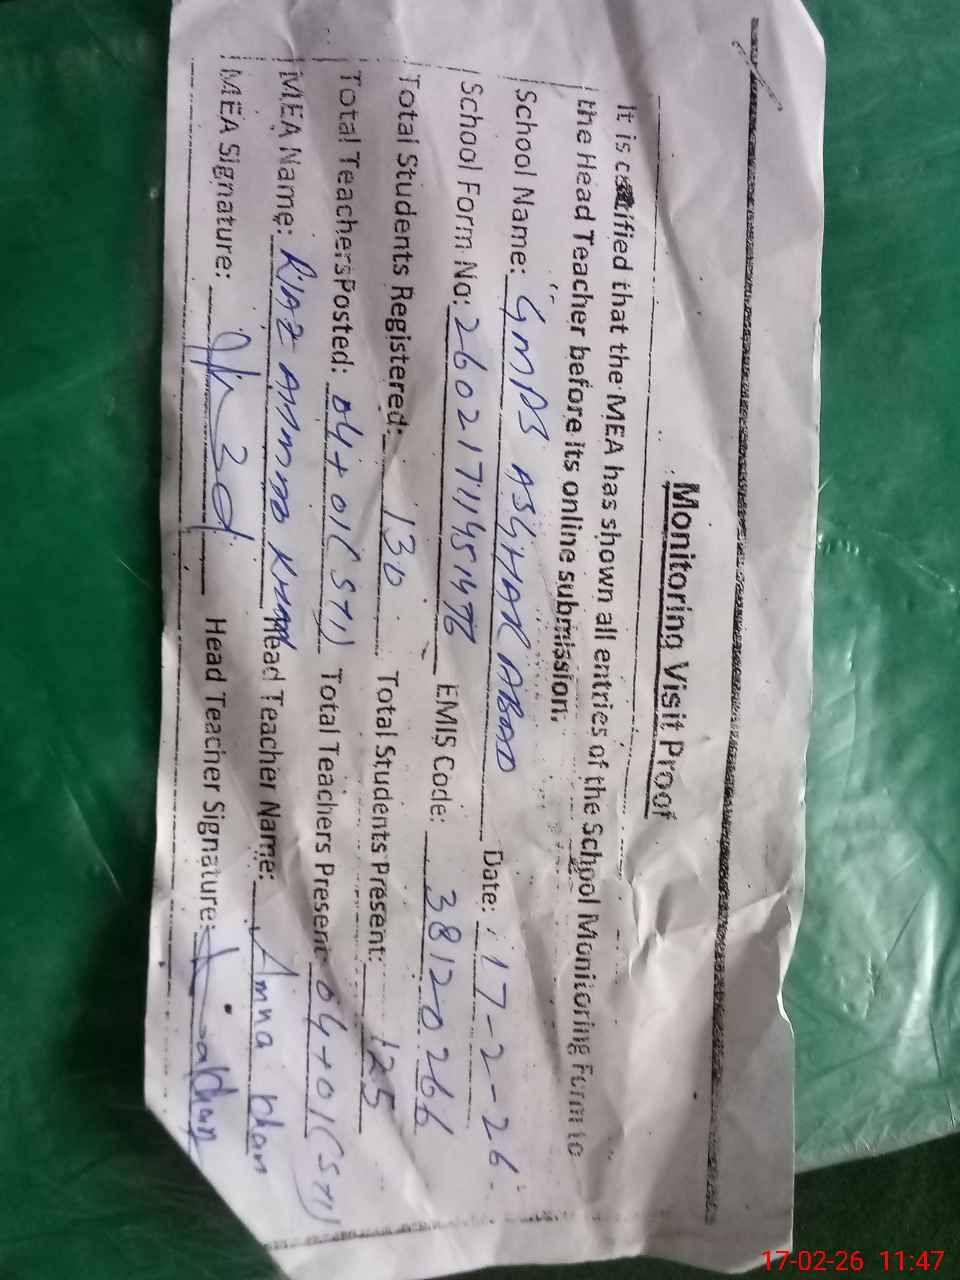 Monitoring Visit Proof
It is certified that the MEA has shown all entries of the School Monitoring Form to
the Head Teacher before its online submission.
School Name: GMPS ASGHAR ABAD Date: 17-2-26
School Form No: EMIS Code: 38120266
Total Students Registered: 130 Total Students Present: 125
Total Teachers Posted: 04+01(STI) Total Teachers Present: 04+01(STI)
MEA Name: RIAZ AHMAD KHAN Head Teacher Name: Amna Khan
MEA Signature: Head Teacher Signature:
17-02-26 11:47